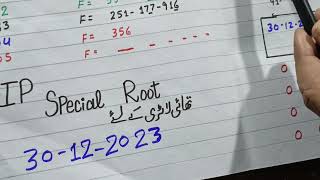 F= 251-177-916
F= 356
F= _ _ _ _
IP Special Root
تھائی لاٹری کے لئے
30-12-2023
30-12-2
0 0
0
0
0